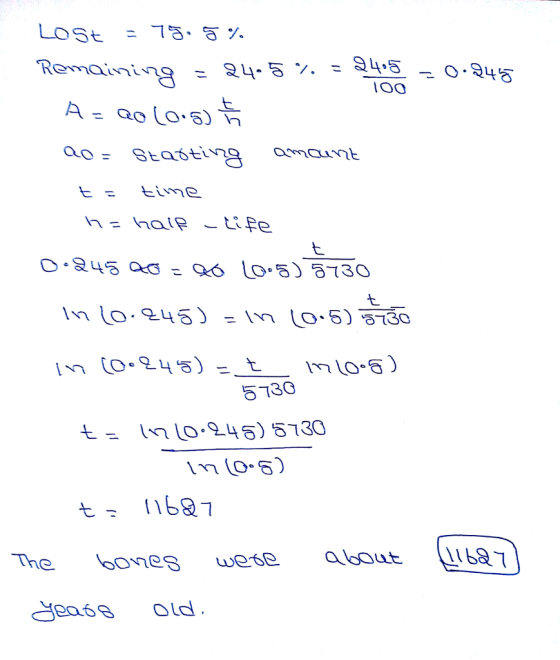 LOSt = 75.5 %
Remaining = 24.5 %. = 24.5/100 = 0.245
A = ao (0.5) t/h
ao = Starting amount
t = time
h = half - Life
0.245 ao = ao (0.5) t/5730
ln (0.245) = ln (0.5) t/5730
ln (0.245) = t/5730 ln (0.5)
t = ln (0.245) 5730 / ln (0.5)
t = 11627
The bones were about 11627
years old.